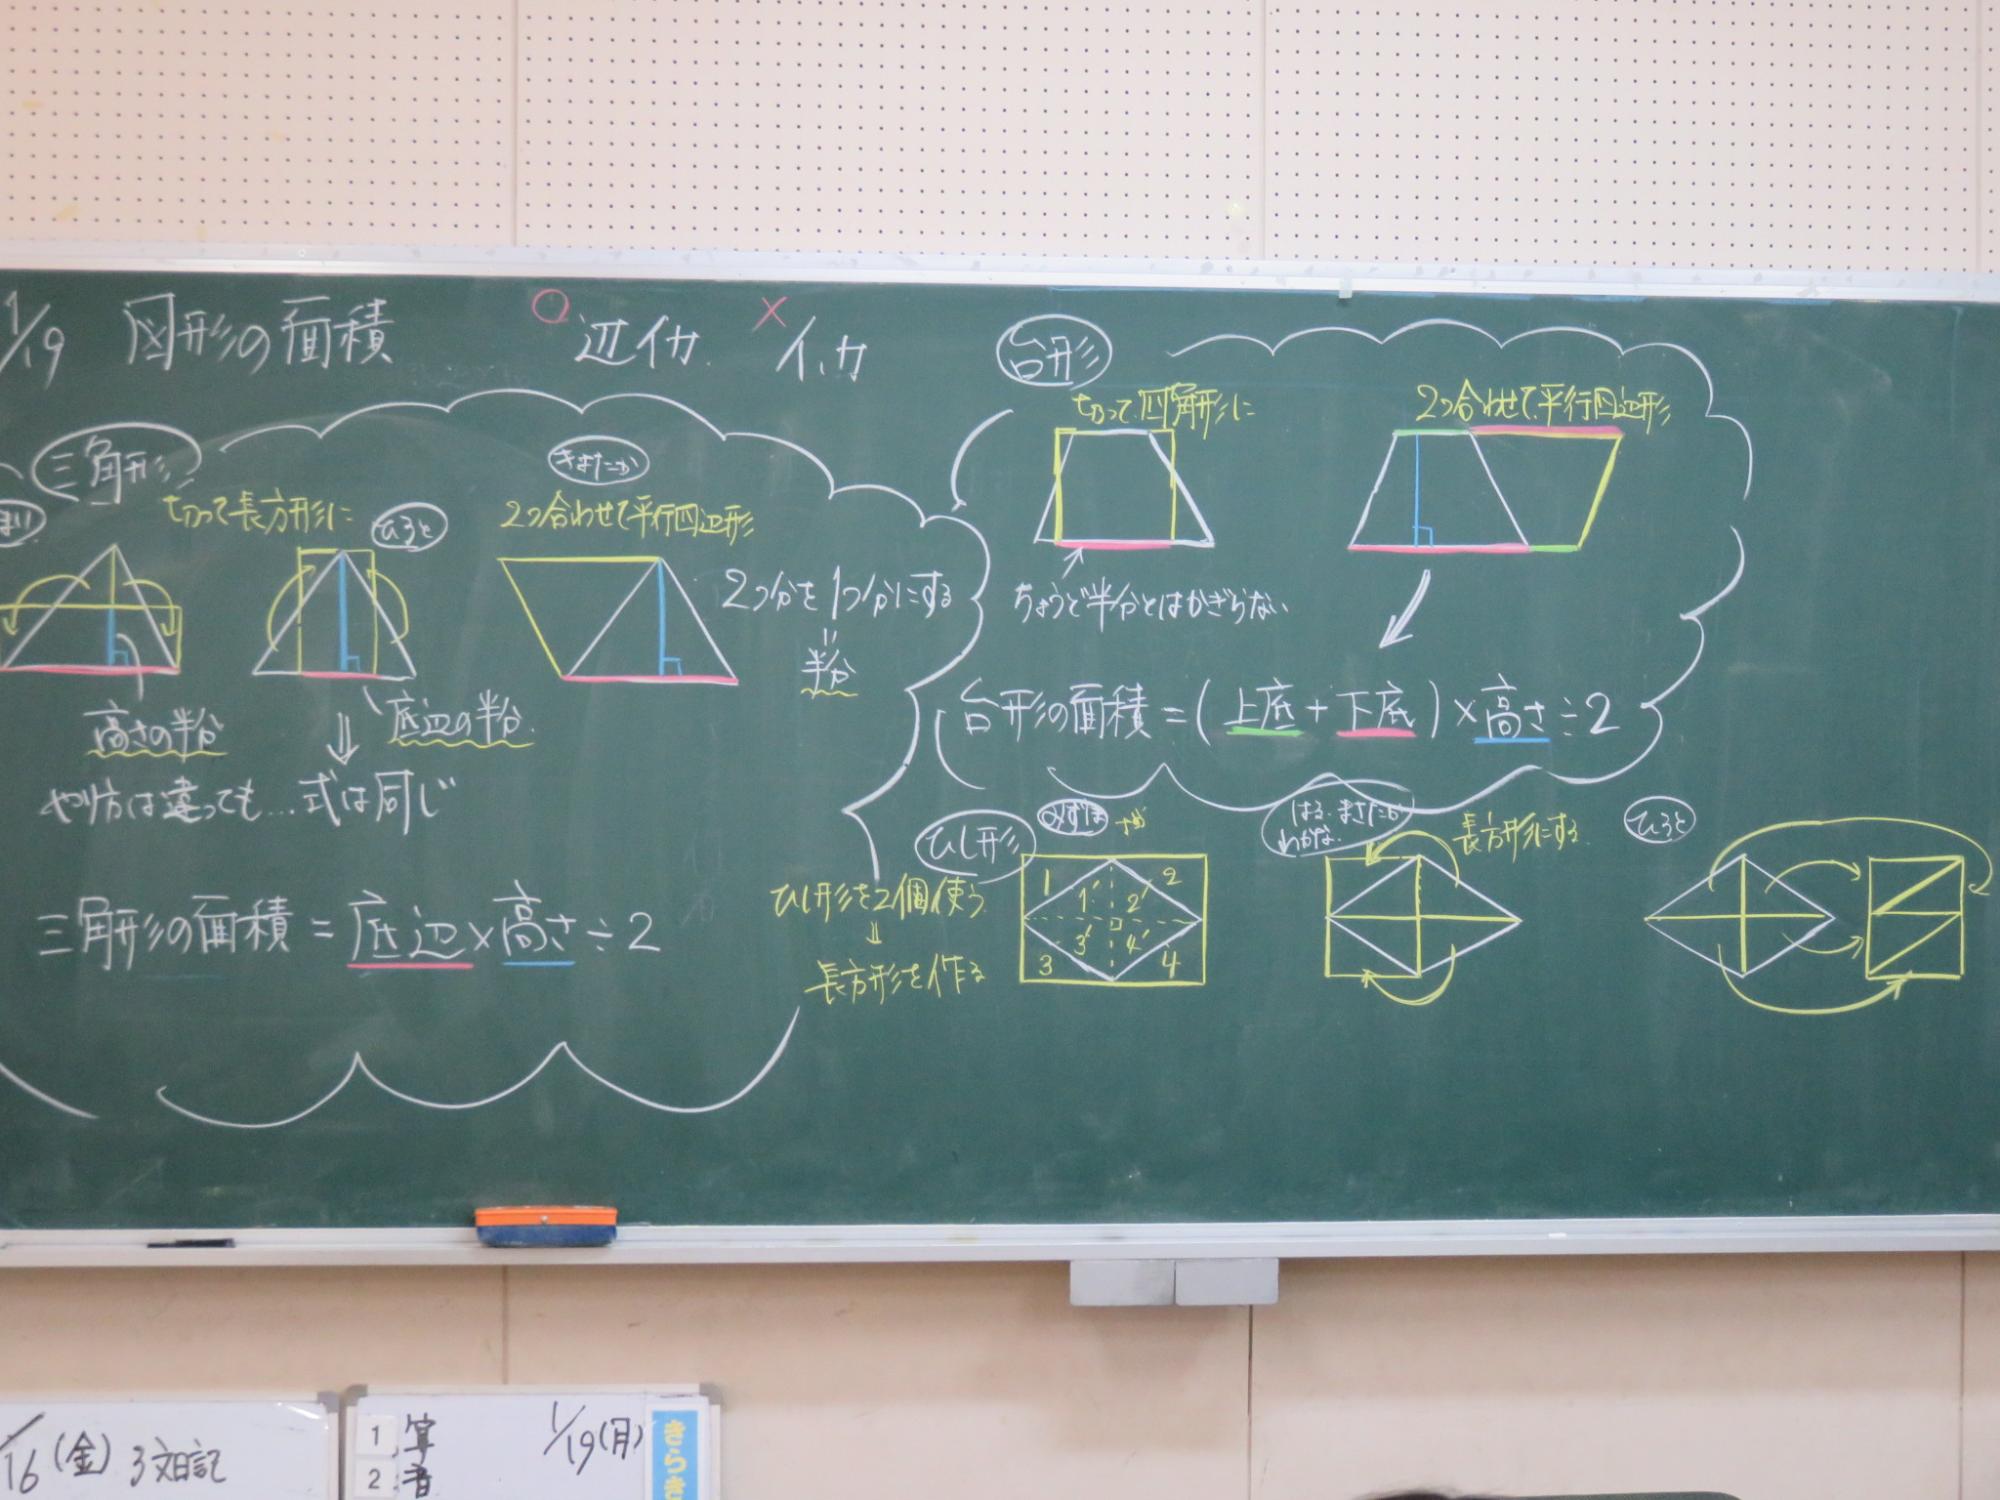 1/19 図形の面積
○ 辺イカ × イ、カ
三角形
まい
切って長方形に
ひろと
きまたか
2つ合わせて平行四辺形
2つ分を1つ分にする
=
半分
高さの半分
底辺の半分
⇓
やり方は違っても…式は同じ
三角形の面積=底辺×高さ÷2
台形
切って四角形に
2つ合わせて平行四辺形
ちょうど半分とはかぎらない
台形の面積=(上底+下底)×高さ÷2
ひし形
みずほ
ひし形を2個使う
⇓
長方形を作る
1 1' 2' 2
3 3' 4' 4
はる・まさたか
わかな
長方形にする
ひろと
1/16(金) 3文日記
1/19(月)
1 算
2 音
きらき